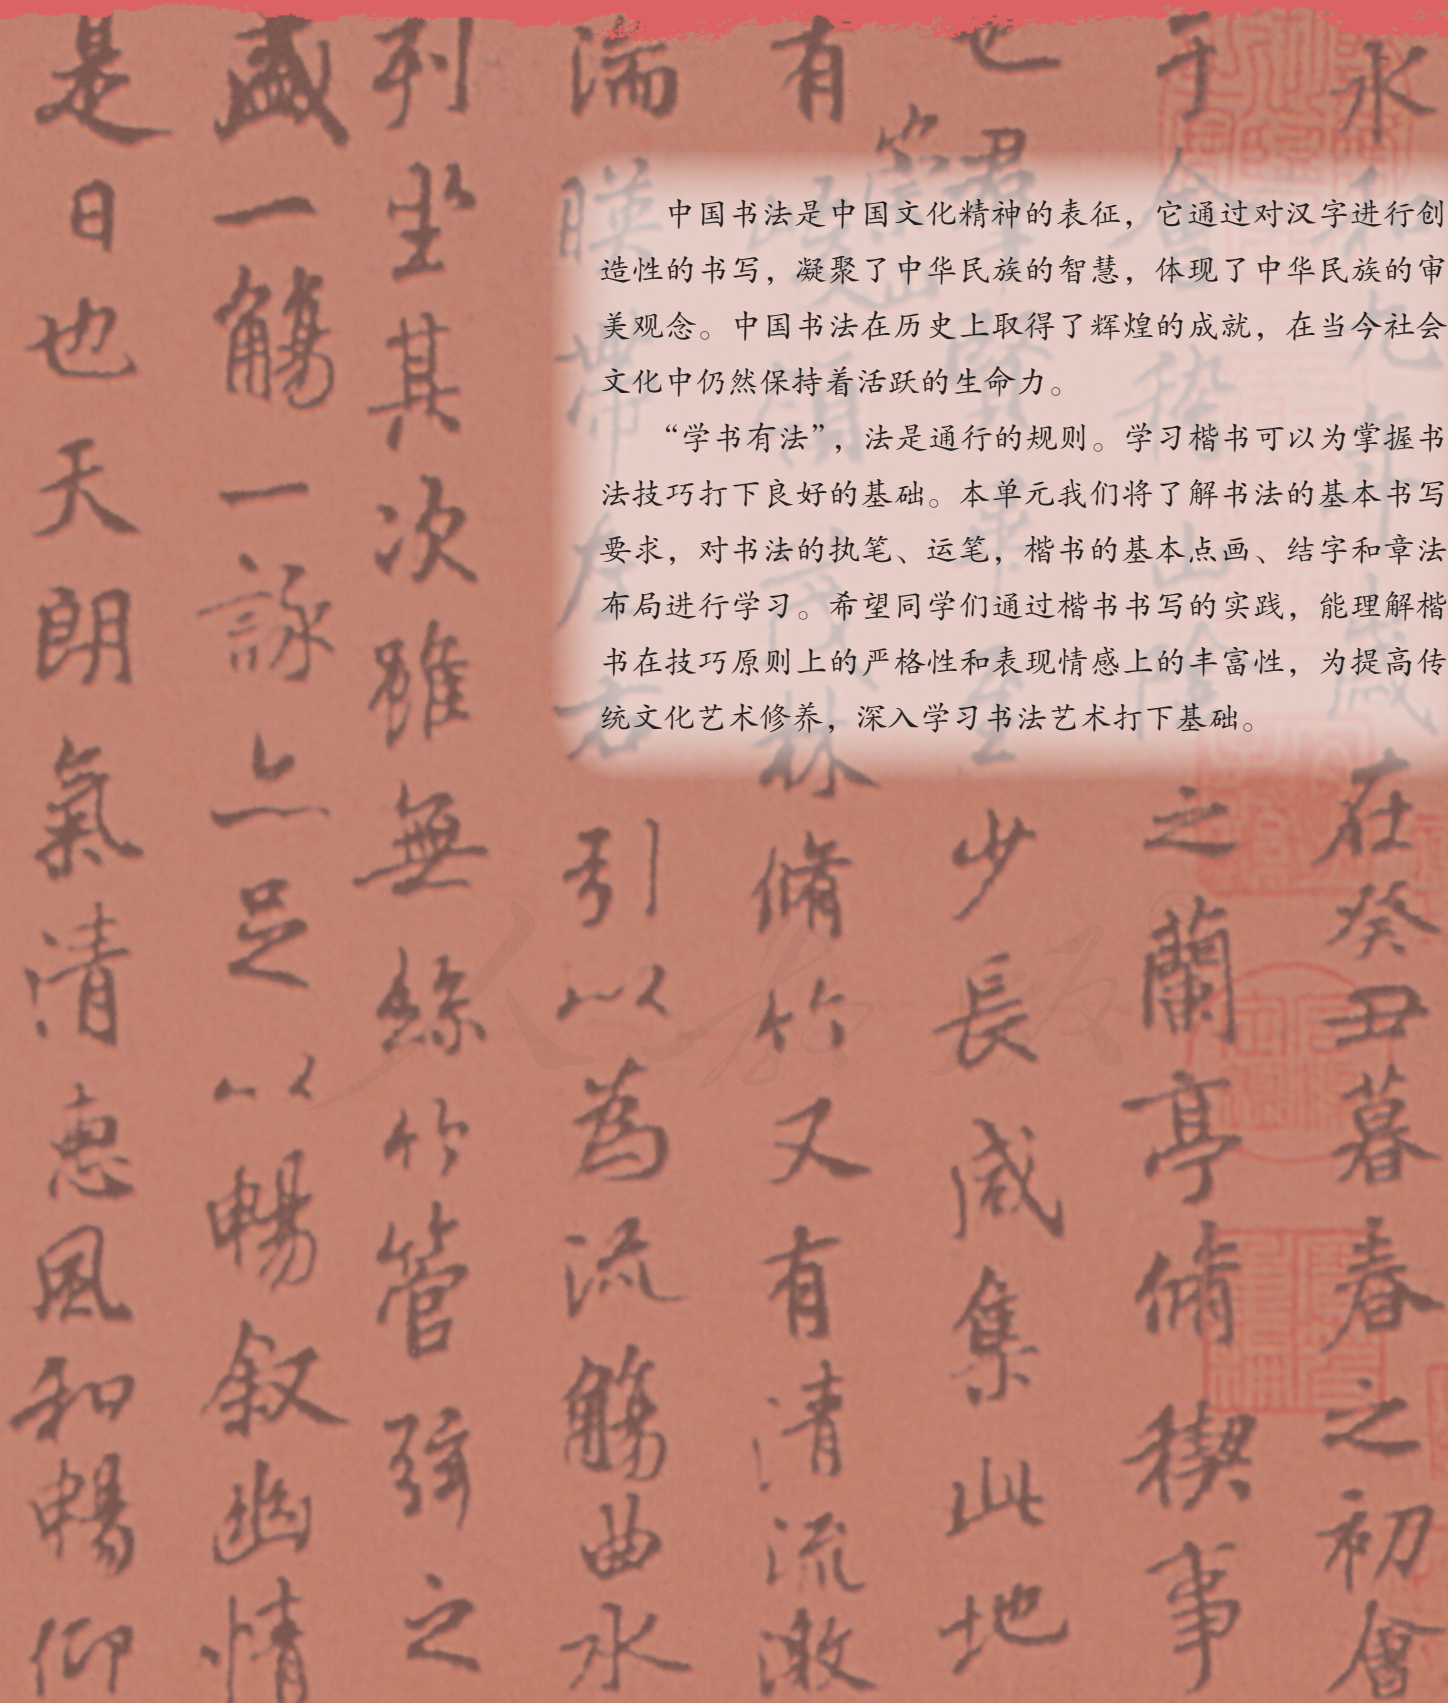 中国书法是中国文化精神的表征，它通过对汉字进行创
造性的书写，凝聚了中华民族的智慧，体现了中华民族的审
美观念。中国书法在历史上取得了辉煌的成就，在当今社会
文化中仍然保持着活跃的生命力。
“学书有法”，法是通行的规则。学习楷书可以为掌握书
法技巧打下良好的基础。本单元我们将了解书法的基本书写
要求，对书法的执笔、运笔，楷书的基本点画、结字和章法
布局进行学习。希望同学们通过楷书书写的实践，能理解楷
书在技巧原则上的严格性和表现情感上的丰富性，为提高传
统文化艺术修养，深入学习书法艺术打下基础。
永和九年歲在癸丑暮春之初會
于會稽山陰之蘭亭脩稧事
也羣賢畢至少長咸集此地
崇山
有峻領茂林脩竹又有清流激
湍暎帶左右引以為流觴曲水
列坐其次雖無絲竹管弦之
盛一觴一詠亦足以暢敘幽情
是日也天朗氣清惠風和暢仰
人教版